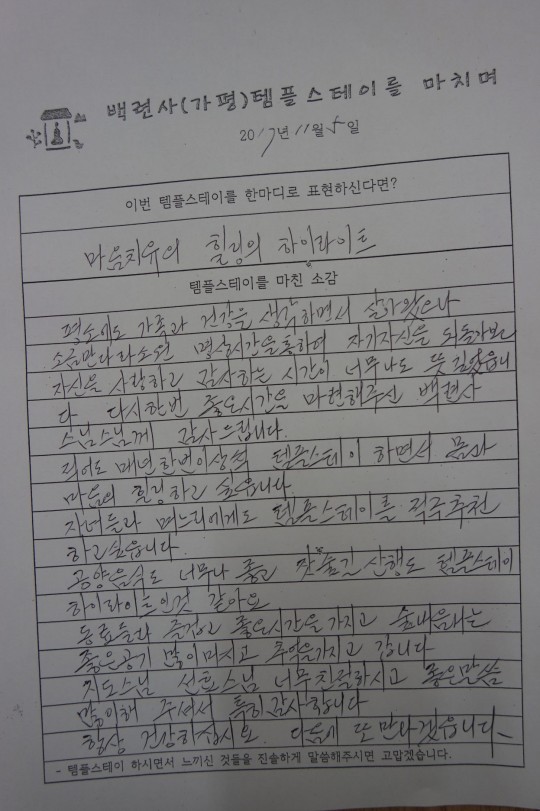 백련사(가평)템플스테이를 마치며
2017년 11월 5일
이번 템플스테이를 한마디로 표현하신다면?
마음치유의 힐링의 하이라이트
템플스테이를 마친 소감
평소에도 가족과 건강을 생각하면서 살아왔으나
명상시간을통하여 자기자신을 되돌아보니
자신을 사랑하고 감사하는 시간이 너무나도 뜻깊었읍니
다 다시한번 좋은시간을 마련해주신 백련사
스님께 감사드립니다.
적어도 매년한번이상씩 템플스테이 하면서 몸과
마음의 힐링하고 싶읍니다
자녀들과 며느리에게도 템플스테이를 적극추천
하고싶읍니다.
공양음식도 너무나 좋고 잣숲길 산행도 템플스테이
하이라이트인것 같아요
동료들과 즐겁고 좋은시간을 가지고 숲내음나는
좋은공기 많이마시고 추억을가지고 갑니다
지도스님 스님 너무친절하시고 좋은말씀
많이해 주셔서 특히감사합니다
항상 건강하십시요. 다음에 또 만나겠읍니다
- 템플스테이 하시면서 느끼신 것들을 진솔하게 말씀해주시면 고맙겠습니다.